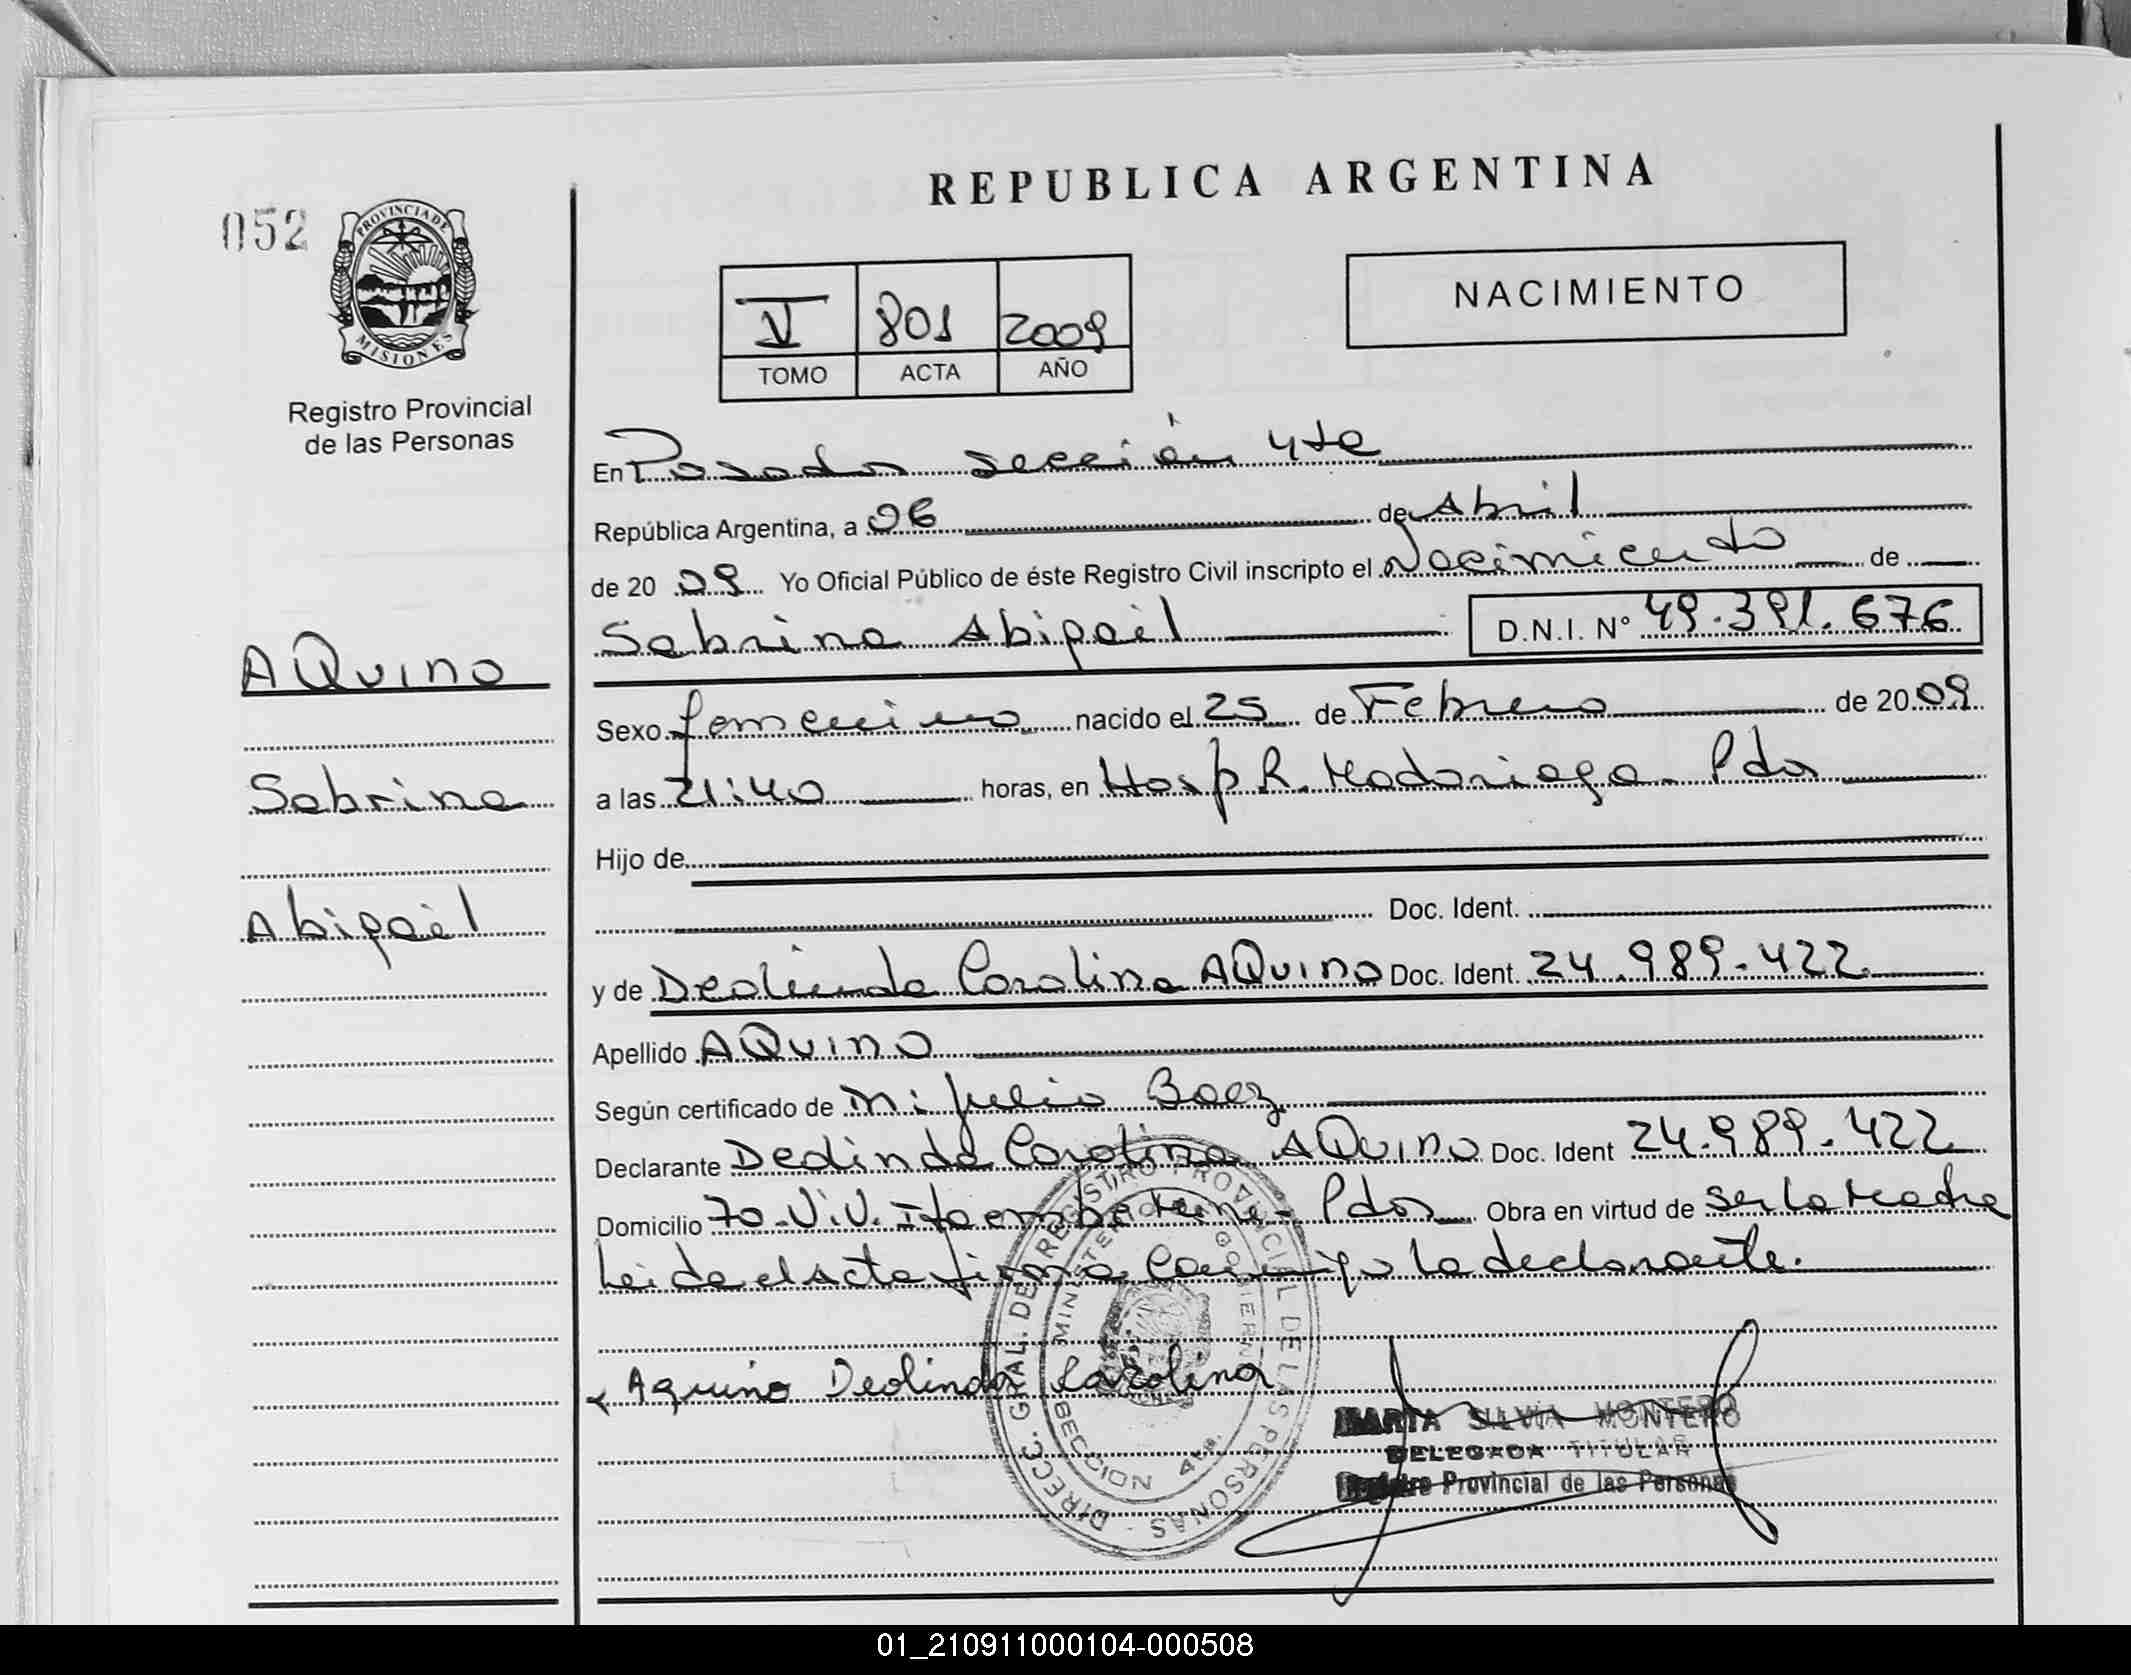 REPUBLICA ARGENTINA
052
PROVINCIA DE
MISIONES
Registro Provincial
de las Personas
V 801 2009
TOMO ACTA AÑO
NACIMIENTO
En Posadas sección 4ta
República Argentina, a 06 de Abril
de 20 09 Yo Oficial Público de éste Registro Civil inscripto el Nacimiento de
Sabrina Abigail D.N.I. N° 49.391.676
AQuino
Sabrina
Abigail
Sexo femenino nacido el 25 de Febrero de 20 09
a las 21:40 horas, en Hosp R. Madariaga - Pdas
Hijo de
Doc. Ident.
y de Deolinda Carolina AQuino Doc. Ident. 24.989.422
Apellido AQuino
Según certificado de Julio Baez
Declarante Deolinda Carolina AQuino Doc. Ident 24.989.422
Domicilio 70. Viv. Itaembe Mini - Pdas Obra en virtud de ser la Madre
Leida el acta firma conmigo la declarante.
Aquino Deolinda Carolina
DIRECC. GRAL. DE REGISTRO PROVINCIAL DE LAS PERSONAS
MINISTERIO GOBIERNO
SECCION 4ta.
MARTA SILVIA MONTERO
DELEGADA TITULAR
Registro Provincial de las Personas
01_210911000104-000508